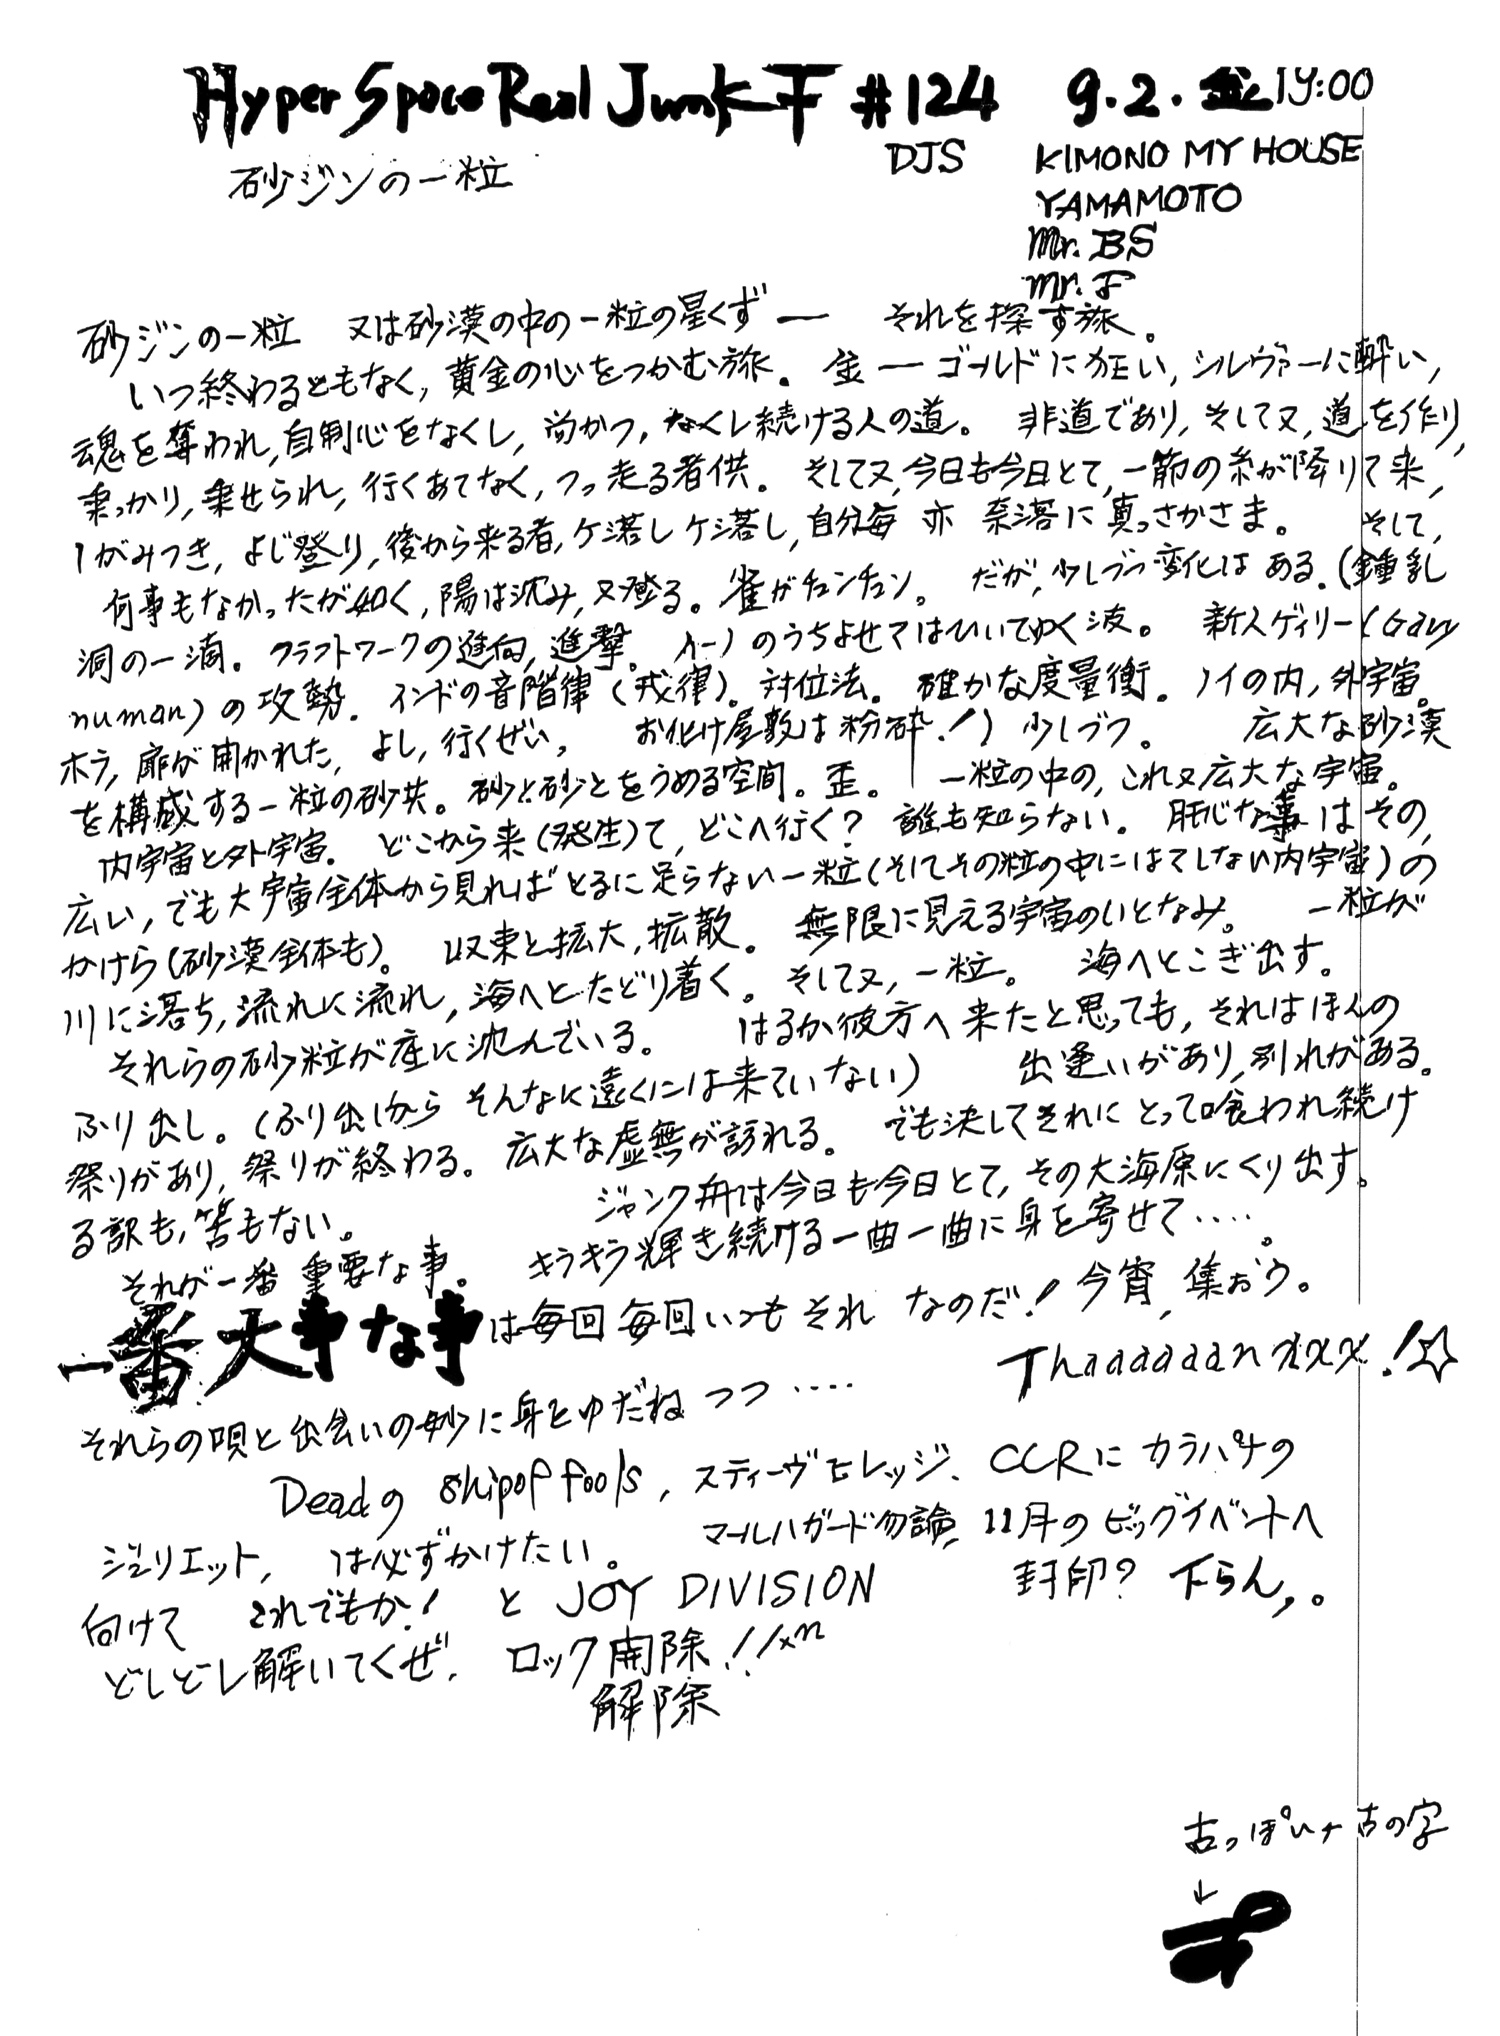 Hyper Space Real Junk 干 #124 9.2.金 19:00
砂ジンの一粒 DJS KIMONO MY HOUSE
YAMAMOTO
Mr. BS
Mr. F
砂ジンの一粒 又は砂漠の中の一粒の星くず ー それを探す旅。
いつ終わるともなく, 黄金の心をつかむ旅. 金 ー ゴールドに狂い, シルヴァーに酔い,
魂を奪われ, 自制心をなくし, 尚かつ, なくし続ける人の道。 非道であり, そして又, 道を作り,
乗っかり, 乗せられ, 行くあてなく, つっ走る者供. そして又, 今日も今日とて, 一筋の糸が降りて来,
しがみつき, よじ登り, 後から来る者, ケ落しケ落し, 自分毎 亦 奈落に真っさかさま。 そして,
何事もなかったが如く, 陽は沈み, 又登る。雀がチュンチュン。 だが, 少しづつ変化は ある. (鍾乳
洞の一滴. クラフトワークの進向, 進撃。 ハーノのうちよせてはひいてゆく波。 新人ゲイリー(Gary
numan) の攻勢. インドの音階律 (戒律)。対位法. 確かな度量衡. ノイの内, 外宇宙。
ホラ, 扉が開かれた, よし, 行くぜい, お化け屋敷は粉砕!) 少しづつ。 広大な砂漠
を構成する一粒の砂共。砂と砂とをうめる空間。歪。 一粒の中の, これ又広大な宇宙。
内宇宙と外宇宙. どこから来(発生)て, どこへ行く? 誰も知らない. 肝心な事はその,
広い, でも大宇宙全体から見ればとるに足らない一粒(そしてその粒の中にはてしない内宇宙)の
かけら(砂漠全体も)。 収束と拡大, 拡散。 無限に見える宇宙のいとなみ。 一粒が
川に落ち, 流れに流れ, 海へとたどり着く。そして又, 一粒。 海へとこぎ出す。
それらの砂粒が底に沈んでいる。 はるか彼方へ来たと思っても, それはほんの
ふり出し。(ふり出しから そんなに遠くには来ていない) 出逢いがあり, 別れがある.
祭りがあり, 祭りが終わる。広大な虚無が訪れる。 でも決してそれにとって喰われ続け
る訳も, 筈もない。 ジャンク舟は今日も今日とて, その大海原にくり出す。
それが一番 重要な事。 キラキラ輝き続ける一曲一曲に身を寄せて‥‥。
一番大事な事は毎回毎回いつも それ なのだ! 今宵, 集おう。
Thaaaaaanxxx!☆
それらの唄と出会いの妙に身をゆだねつつ ‥‥
Deadの ship of fools, スティーヴヒレッジ. CCRに カラパナの
ジュリエット, は必ずかけたい。 マールハガード勿論, 11月のビッグイベントへ
向けて これでもか! と JOY DIVISION 封印? 下らん,。
どしどし解いてくぜ. ロック開除!!xn
解除
古っぽいナ 古の字
↓